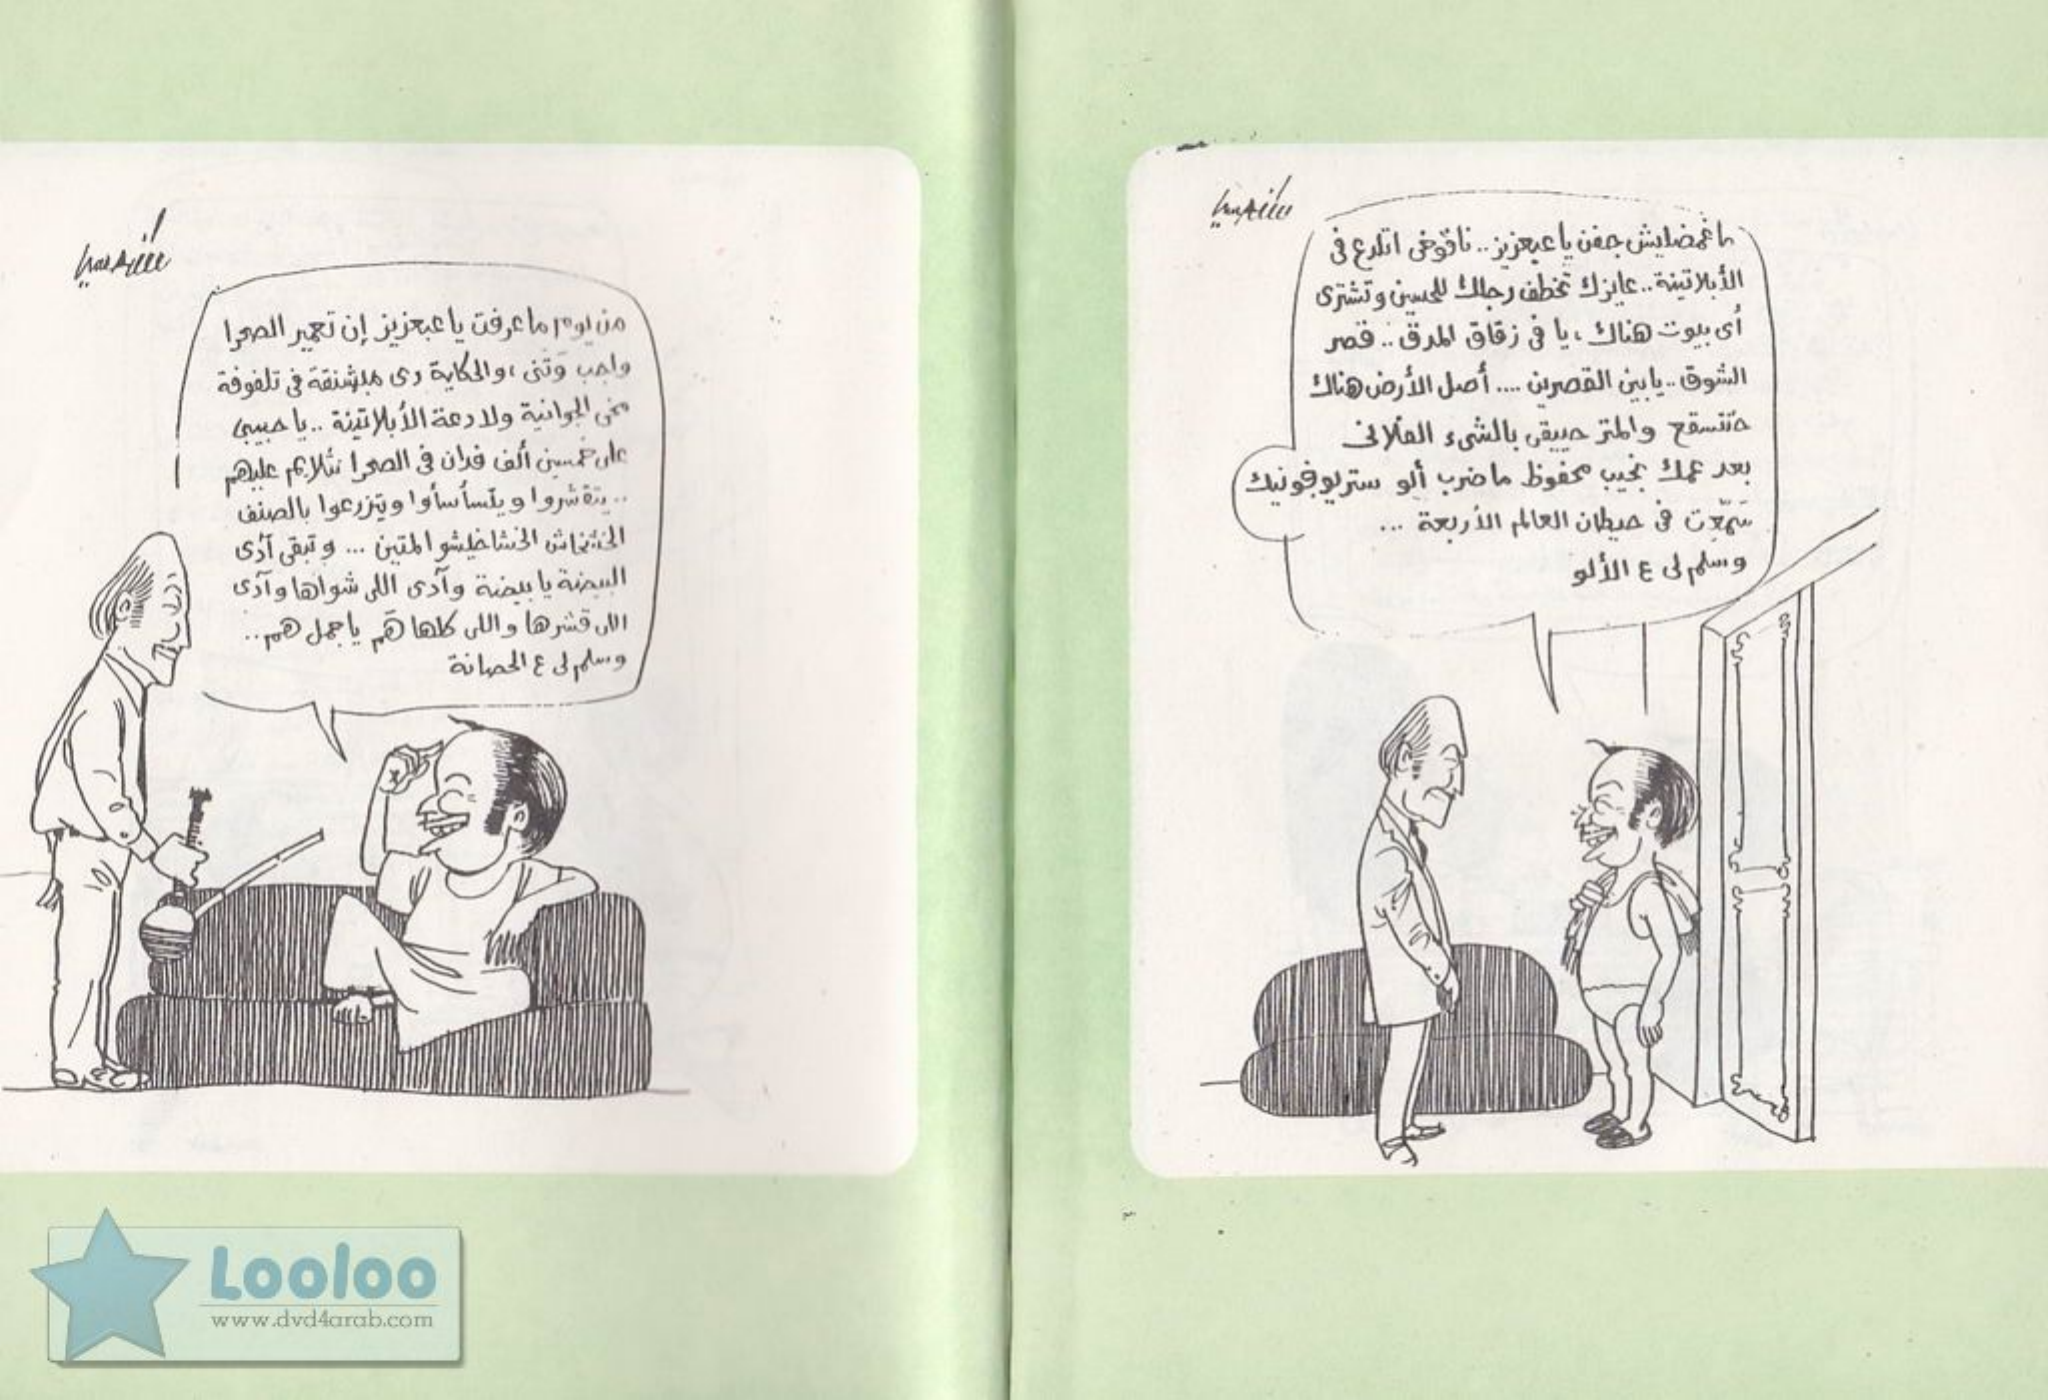 ما غمضليش جفن يا عبعزيز.. نافوخى اتلدع فى
الأبلاتينة.. عايزك تخطف رجلك للحسين وتشترى
أى بيوت هناك، يا فى زقاق المدق.. قصر
الشوق.. يا بين القصرين .... أصل الأرض هناك
حتتسقع والمتر حيبقى بالشىء الفلانى
بعد عمك نجيب محفوظ ما ضرب ألو ستريوفونيك
سَمّعِت فى حيطان العالم الأربعة ...
وسلم لى ع الألو
من يوم ما عرفت يا عبعزيز إن تعمير الصحرا
واجب وَتَنى، والحكاية دى مبشنقة فى تلفوفة
مخى الجوانية ولادعة الأبلاتينة.. يا حبيبى
على خمسين ألف فدان فى الصحرا نتلايم عليهم
.. يتقشروا ويتسأسأوا ويتزرعوا بالصنف
الخشخاش المتين ... وتبقى آدى
البيضة يا بيضة وآدى اللى شواها وآدى
اللى قشرها واللى كلها هَم يا جمل هم..
وسلم لى ع الحصانة
Looloo
www.dvd4arab.com